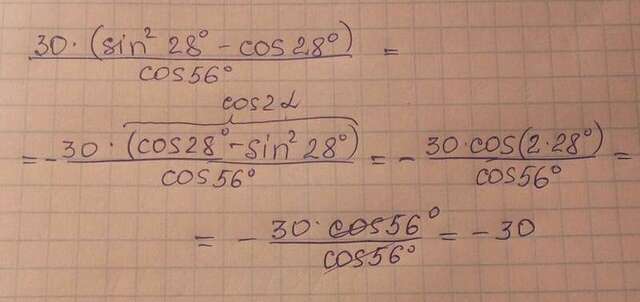 30·(sin² 28° - cos 28°) / cos 56° =
cos 2α
= - 30·(cos 28° - sin² 28°) / cos 56° = - 30·cos(2·28°) / cos 56° =
= - 30·cos 56° / cos 56° = - 30